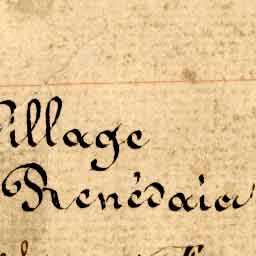 Village
Renédaia